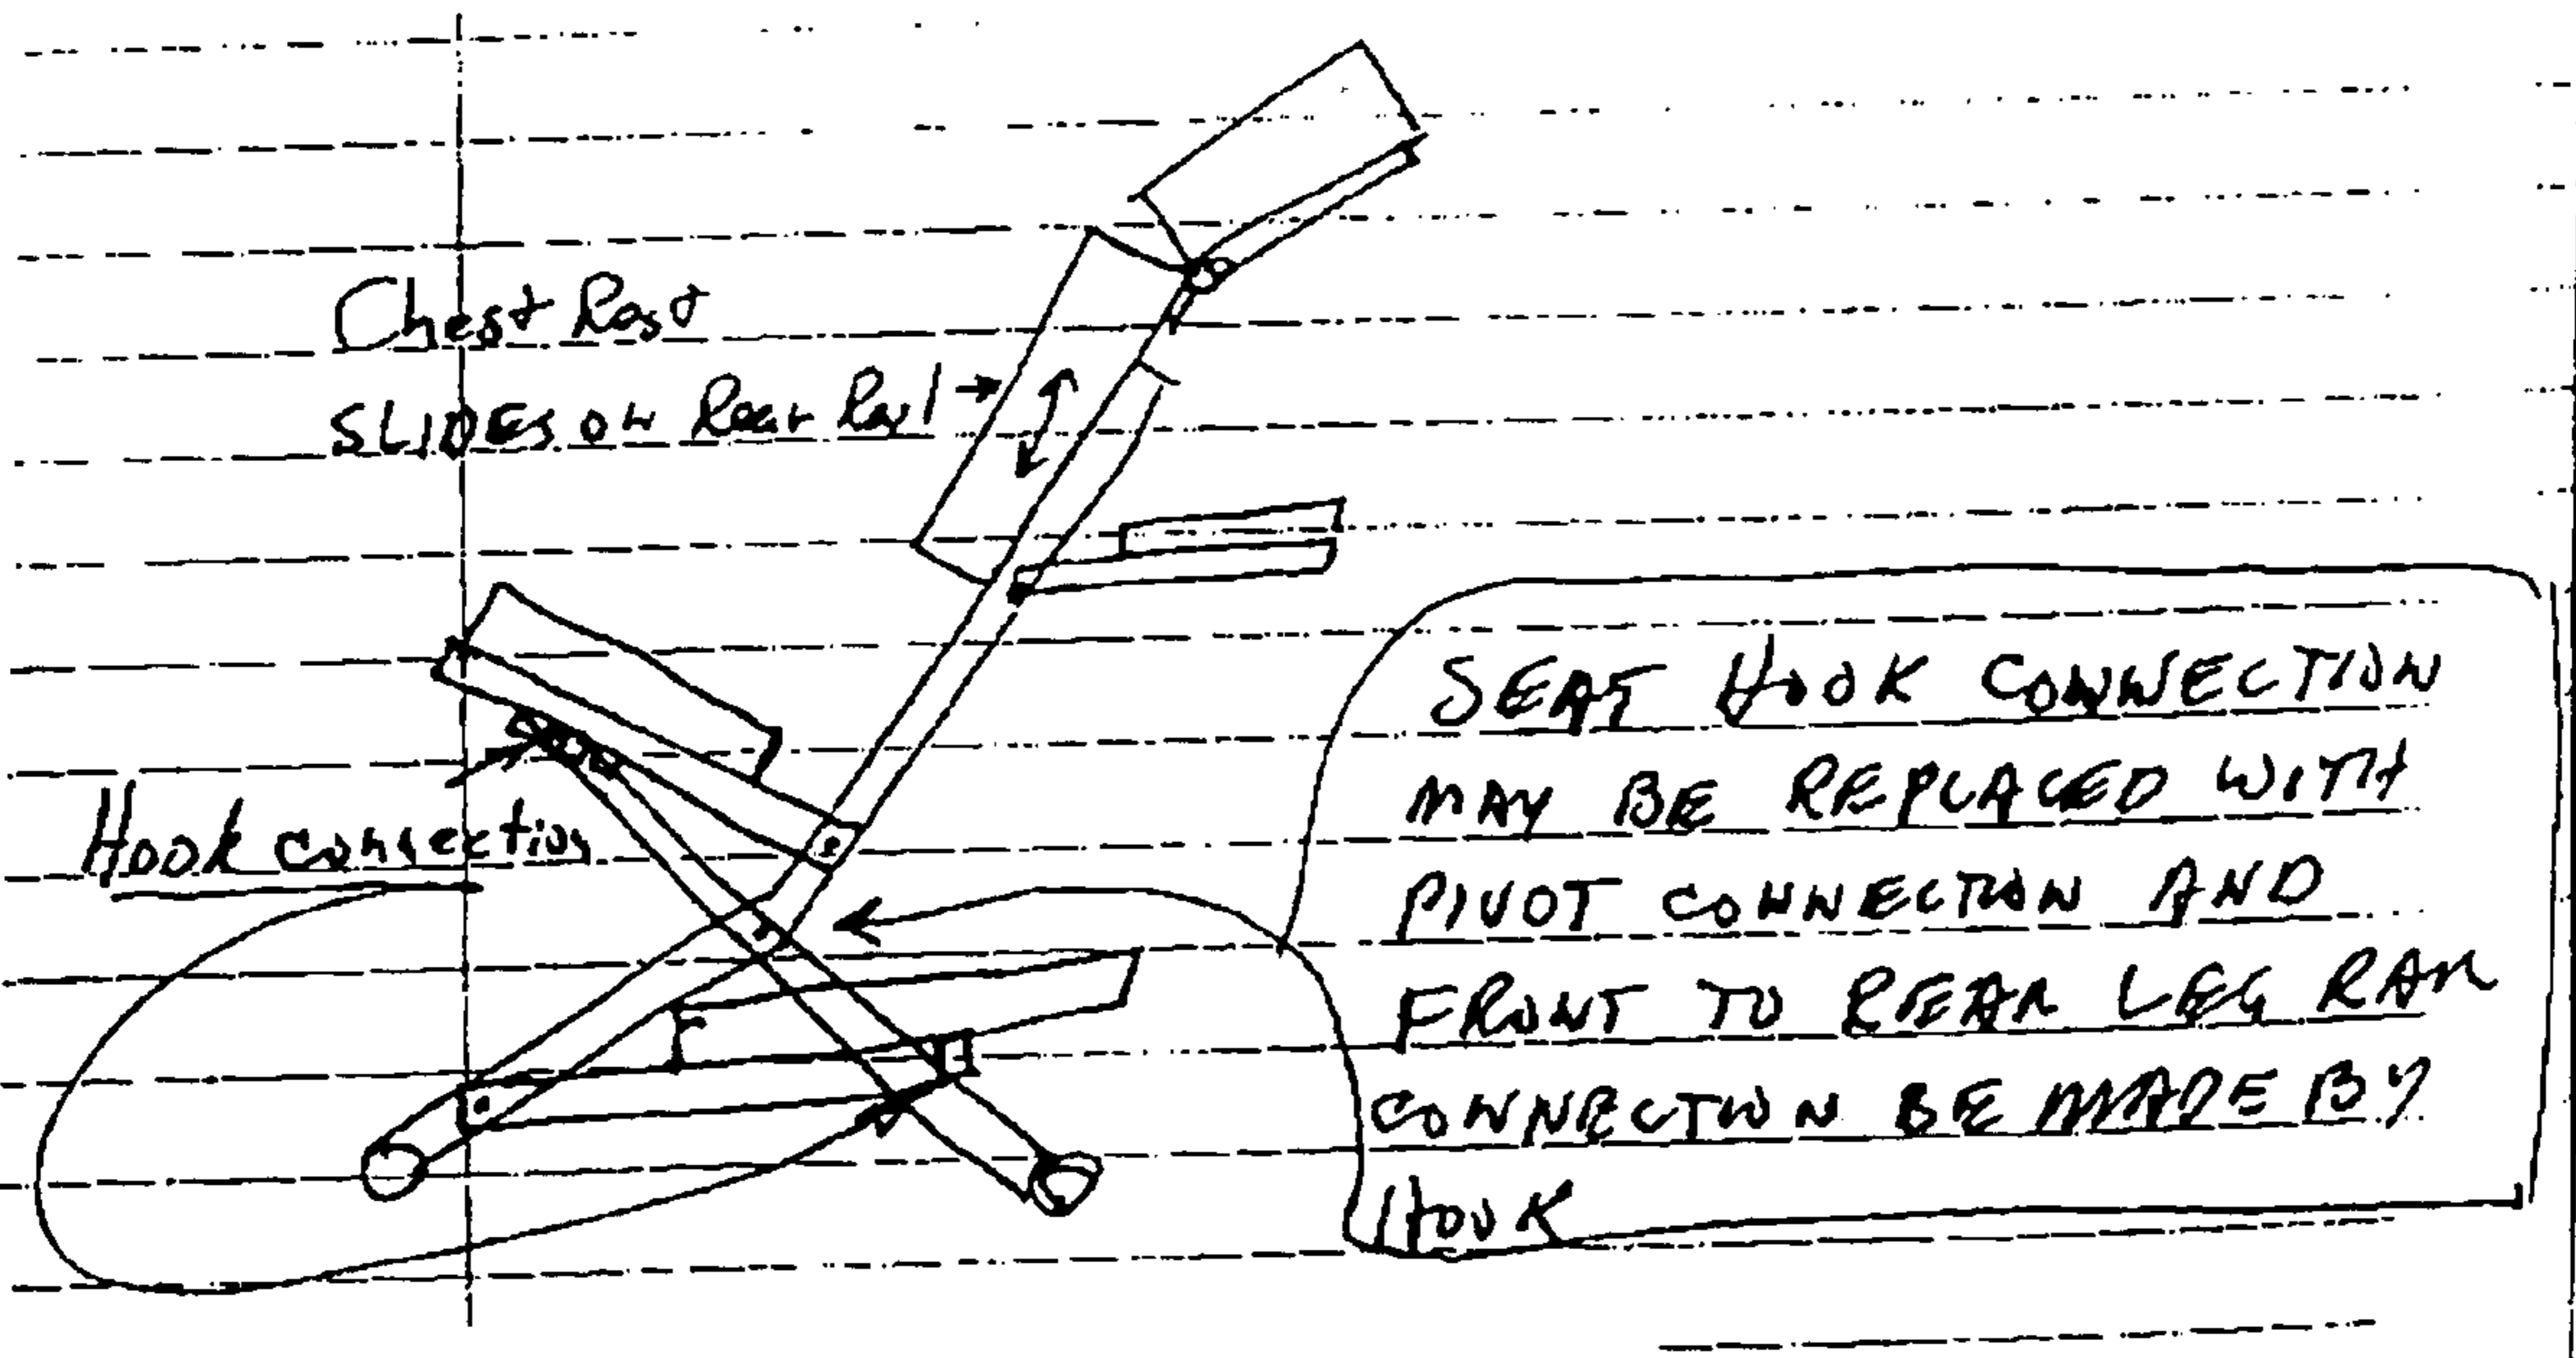 Chest Rest
SLIDES on Rear Rail
Hook connection
SEAT HOOK CONNECTION
MAY BE REPLACED WITH
PIVOT CONNECTION AND
FRONT TO REAR LEG
CONNECTION BE MADE BY
HOOK